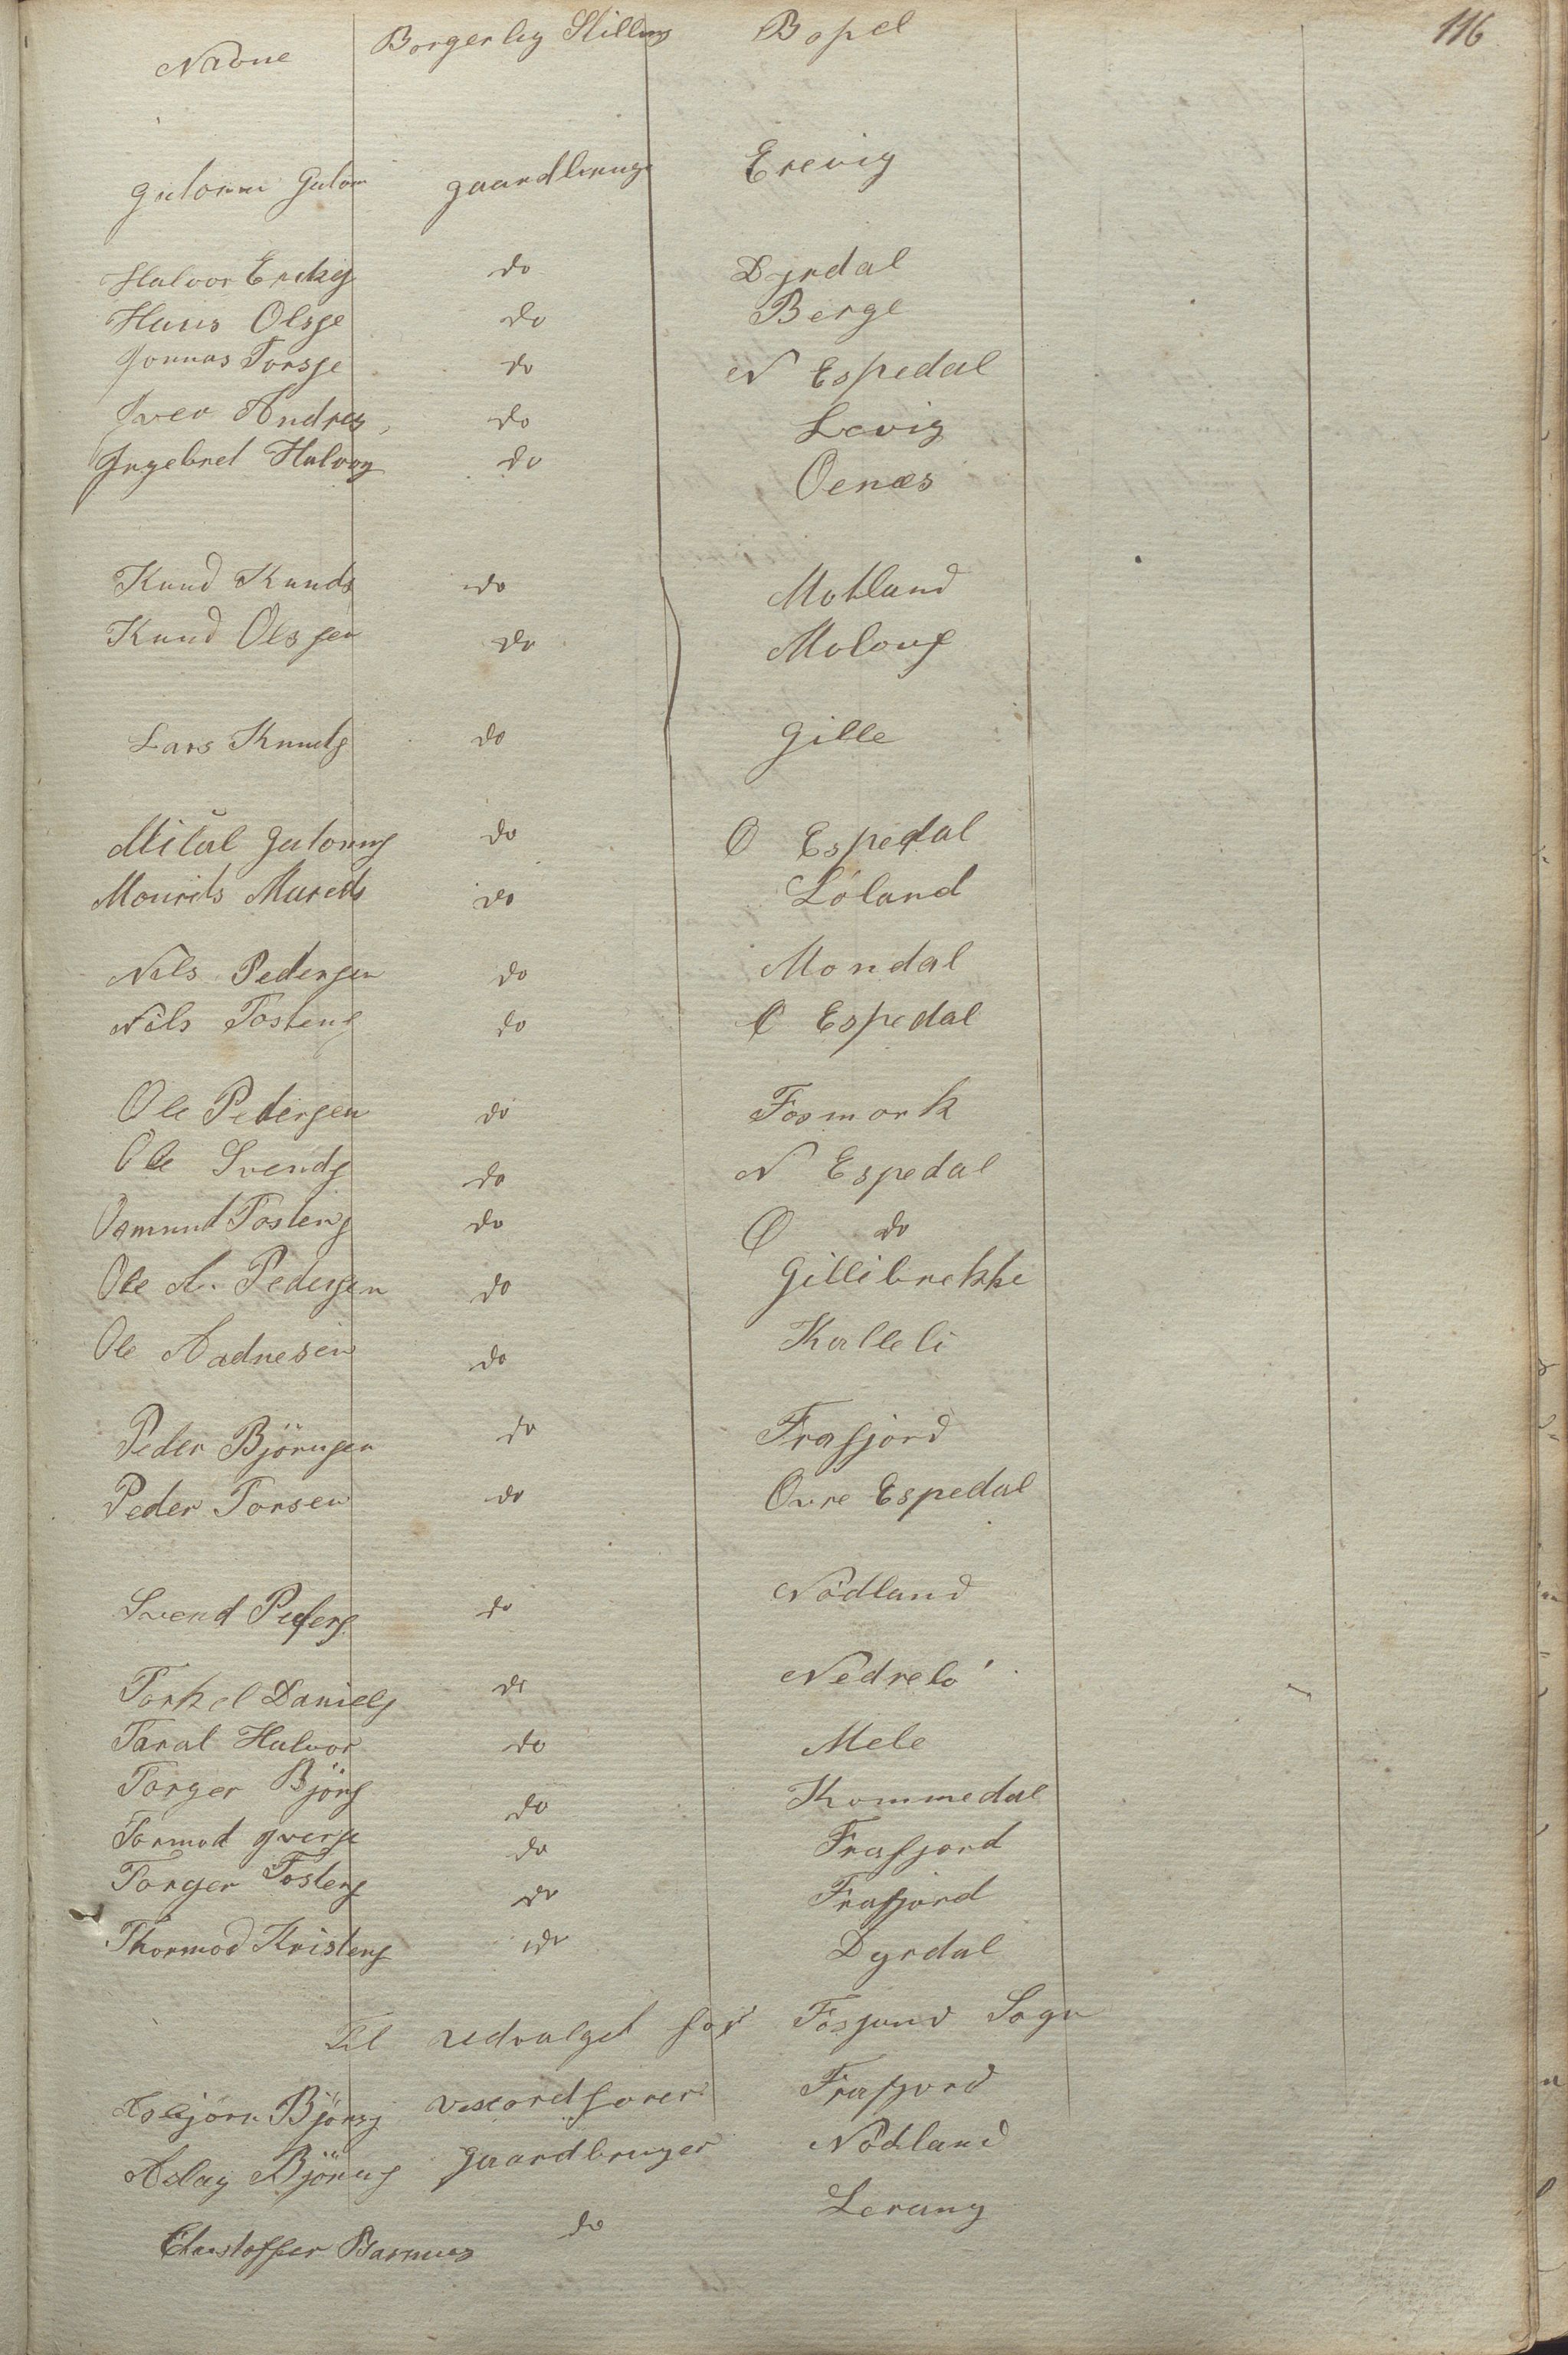 116
Navne Borgerlig Stilling Bopel
Gutorm Gutorm gaardbruge Erevig
Halvor Eriks do Dyrdal
Hans Olsge do Berge
Jonnas Torsge do N Espedal
Iver Andres do Levig
Ingebret Halvors do Oenæs
Knud Knuds do Motland
Knud Olssen do Molaug
Lars Knuds do Gille
Mikal Gutorms do Ø Espedal
Mourits Murets do Löland
Nils Pedersen do Mondal
Nils Tostens do Ø Espedal
Ole Pedersen do Fosmork
Ole Svends do N Espedal
Osmund Tostens do Ø do
Ole A. Pedersen do Gillibrekke
Ole Aadnesen do Kalleli
Peder Björnsen do Frafjord
Peder Torsen do Øvre Espedal
Svend Peders do Nödland
Torkel Daniels do Nedrebö
Taral Halvor do Mele
Torger Björs do Kommedal
Tormod Iverse do Frafjord
Torger Tostens do Frafjord
Thormod Kristens do Dyrdal
Til Udvalget for Fosjand Sogn
Asbjörn Björns Frafjord
Aslag Björns gaardbruger Nödland
Christoffer Rasmus do Lerang